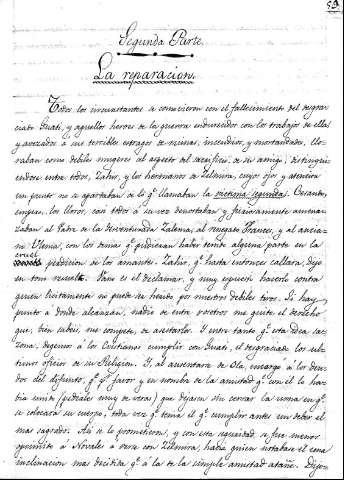 59
Segunda Parte.
La reparacion.
Todos los circunstantes se comovieron con el fallecimiento del desgra-
ciado Guati, y aquellos heroes de la guerra endurecidos con los trabajos de ella
y avezados a sus terribles estragos de ruinas, incendios, y mortandades, llo-
raban como debiles mugeres al aspecto del sacrificio de su amigo; distinguien
dose entre todos, Zahir, y los hermanos de Zelmira, cuyos ojos y atencion
un punto no se apartaban de lo qe llamaban la victima segunda. Durante,
empero, los lloros, casi todos à una denostaban y furiosamente amena-
zaban al Padre de la desventurada Zalema, al renegado Frances, y al ancia-
no Ulema, con los demas qe pudieran haber tenido alguna parte en la
cruel
perdicion de los amantes. Zahir, qe hasta entonces callara, dijo
en tono resuelto. Vano es el declamar, y muy
quien licitamente no puede ser herido por nuestros debiles tiros. Si hay
punto á donde alcanzan, nadie de entre vosotros me quite el derecho
que, bien sabeis, me compete, de asestarlos. Y entre tanto qe esta dea la
zona, dejemos á los Cristianos cumplir con Guati, el desgraciado los ul-
timos oficios de su Religion. Y, al ausentarse de Ola, encargó á los deu-
dos del difunto, qe por favor y en nombre de la amistad qe con el lo ha-
bia unido (pidioles muy de veras) que dejasen sin cerrar la urna en qe
se colocara su cuerpo, toda vez qe tenia el qe cumplir antes un deber el
mas sagrado. Asi se lo prometieron, y con esta seguridad se fue menos
oprimido á Novale á verse con Zelmira, hacia quien notaban el una
inclinacion mas decidida qe á la de la simple amistad atañe. Dijo-